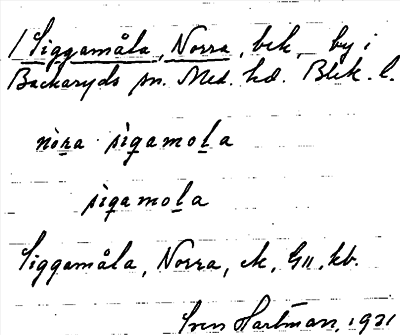 1 Siggamåla, Norra, bek. by i
Backaryds sn. Med. hd. Blek. l.
nòra sìgamola
sìgamola
Siggamåla, Norra, Gu. kb.
Sven Hartman, 1921